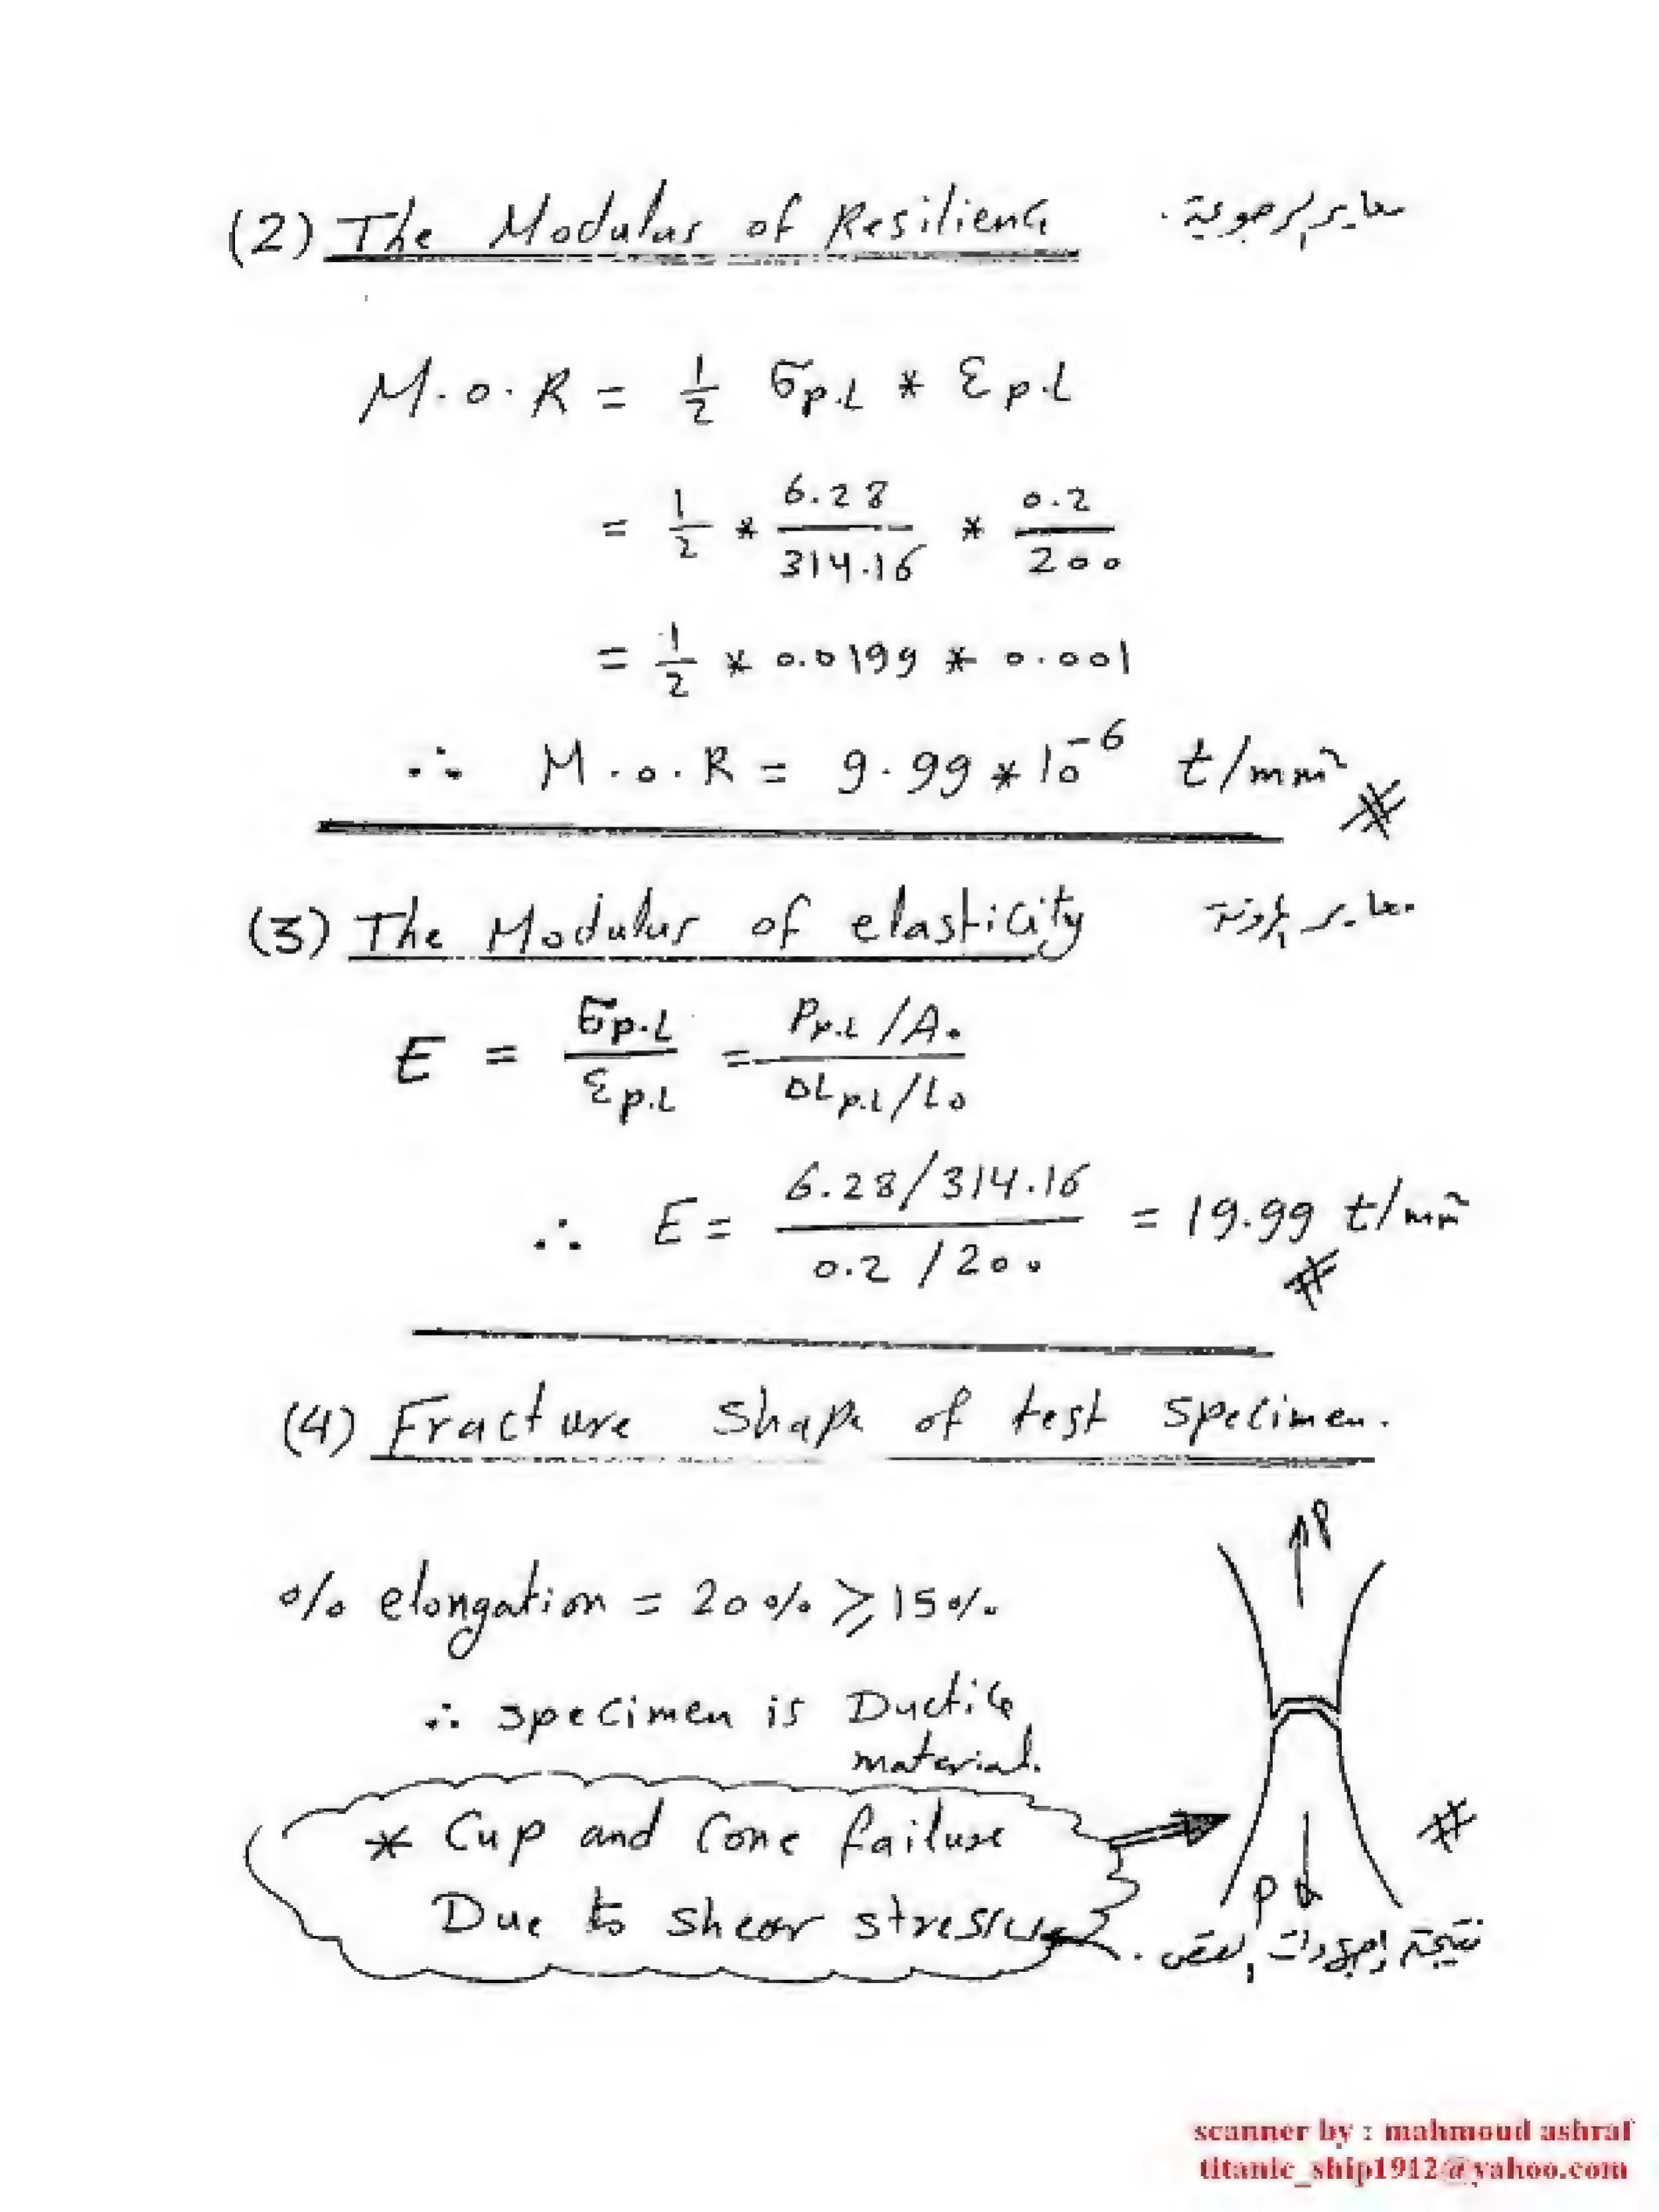 (2) The Modulus of Resilience معاير الرجوعية.
M.O.R = 1/2 σp.L * εp.L
= 1/2 * 6.28/314.16 * 0.2/200
= 1/2 * 0.0199 * 0.001
∴ M.O.R = 9.99 * 10⁻⁶ t/mm² #
(3) The Modulus of elasticity معاير المرونة
E = σp.L/εp.L = Pp.L/A₀ / ΔLp.L/L₀
∴ E = 6.28/314.16 / 0.2/200 = 19.99 t/mm² #
(4) Fracture Shape of test specimen.
P
% elongation = 20% ⩾ 15%
∴ specimen is Ductile
material.
* Cup and Cone failure #
Due to shear stresses P
نتيجة إجهادات القص.
scanner by : mahmoud ashraf
titanic_ship1912@yahoo.com